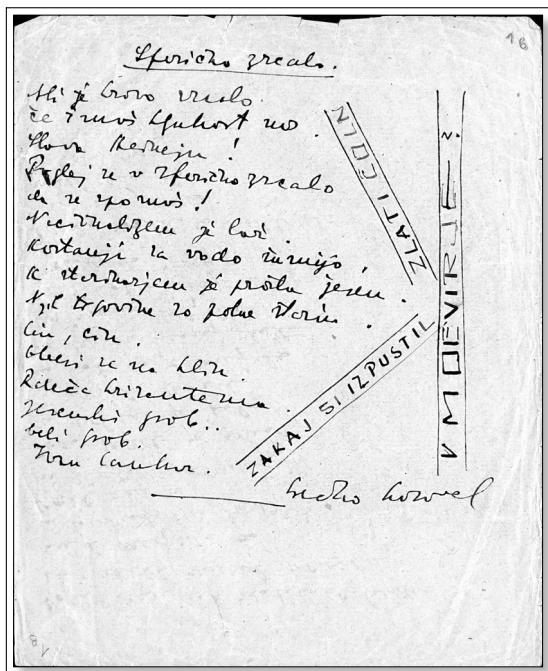 16
Sferično zrcalo.
Ali je krivo zrcalo
če imaš kljukast nos.
Slava Heineju!
Poglej se v sferično zrcalo
da se spoznaš!
Nacionalizem je laž.
Kostanji za vodo šumijo,
k starinarjem je prišla jesen.
Njih trgovine so polne starin.
Cin, cin.
Obesi se na klin.
Rdeča krizantema.
Jesenski grob..
beli grob.
Ivan Cankar.
ZAKAJ SI IZPUSTIL
ZLATI ČOLN
V MOČVIRJE?
Srečko Kosovel